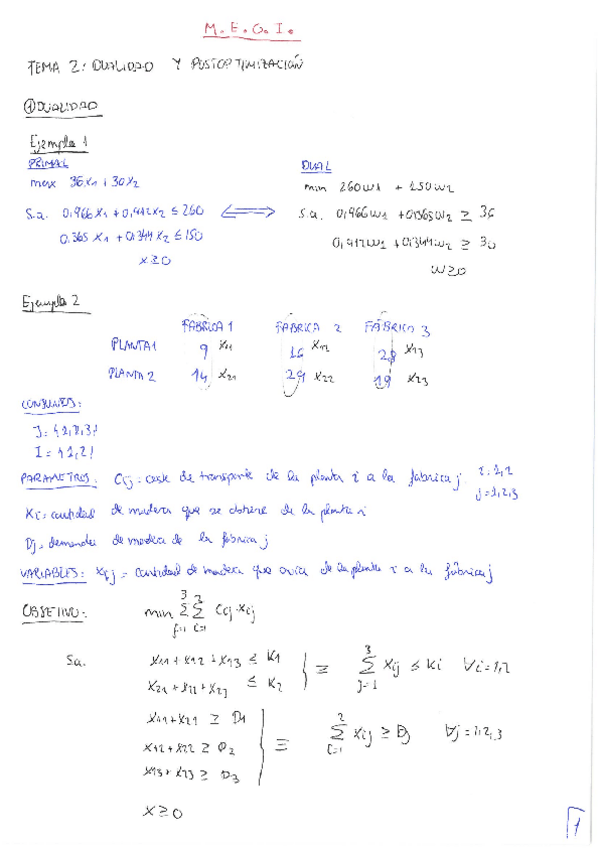 M.E.O.I.
TEMA 2: DUALIDAD Y POSTOPTIMIZACIÓN
① DUALIDAD
Ejemplo 1
PRIMAL DUAL
max 36x1 + 30x2 min 260w1 + 150w2
s.a. 0,966x1 + 0,412x2 ≤ 260 ⟺ s.a. 0,966w1 + 0,365w2 ≥ 36
0.365x1 + 0,344x2 ≤ 150 0,412w1 + 0,344w2 ≥ 30
x≥0 w≥0
Ejemplo 2
FÁBRICA 1 FÁBRICA 2 FÁBRICA 3
PLANTA 1 9 x11 16 x12 28 x13
PLANTA 2 14 x21 29 x22 19 x23
CONJUNTOS:
J = {1,2,3}
I = {1,2}
PARÁMETROS: Cij: coste de transporte de la planta i a la fábrica j. i=1,2
j=1,2,3
Ki = cantidad de madera que se obtiene de la planta i
Dj = demanda de madera de la fábrica j
VARIABLES: xij = cantidad de madera que envía de la planta i a la fábrica j
OBJETIVO: min 3∑j=1 2∑i=1 Cij·xij
s.a. x11 + x12 + x13 ≤ K1
x21 + x22 + x23 ≤ K2 } ≡ 3∑j=1 xij ≤ Ki ∀i=1,2
x11 + x21 ≥ D1
x12 + x22 ≥ D2 } ≡ 2∑i=1 xij ≥ Dj ∀j=1,2,3
x13 + x23 ≥ D3
x≥0
1